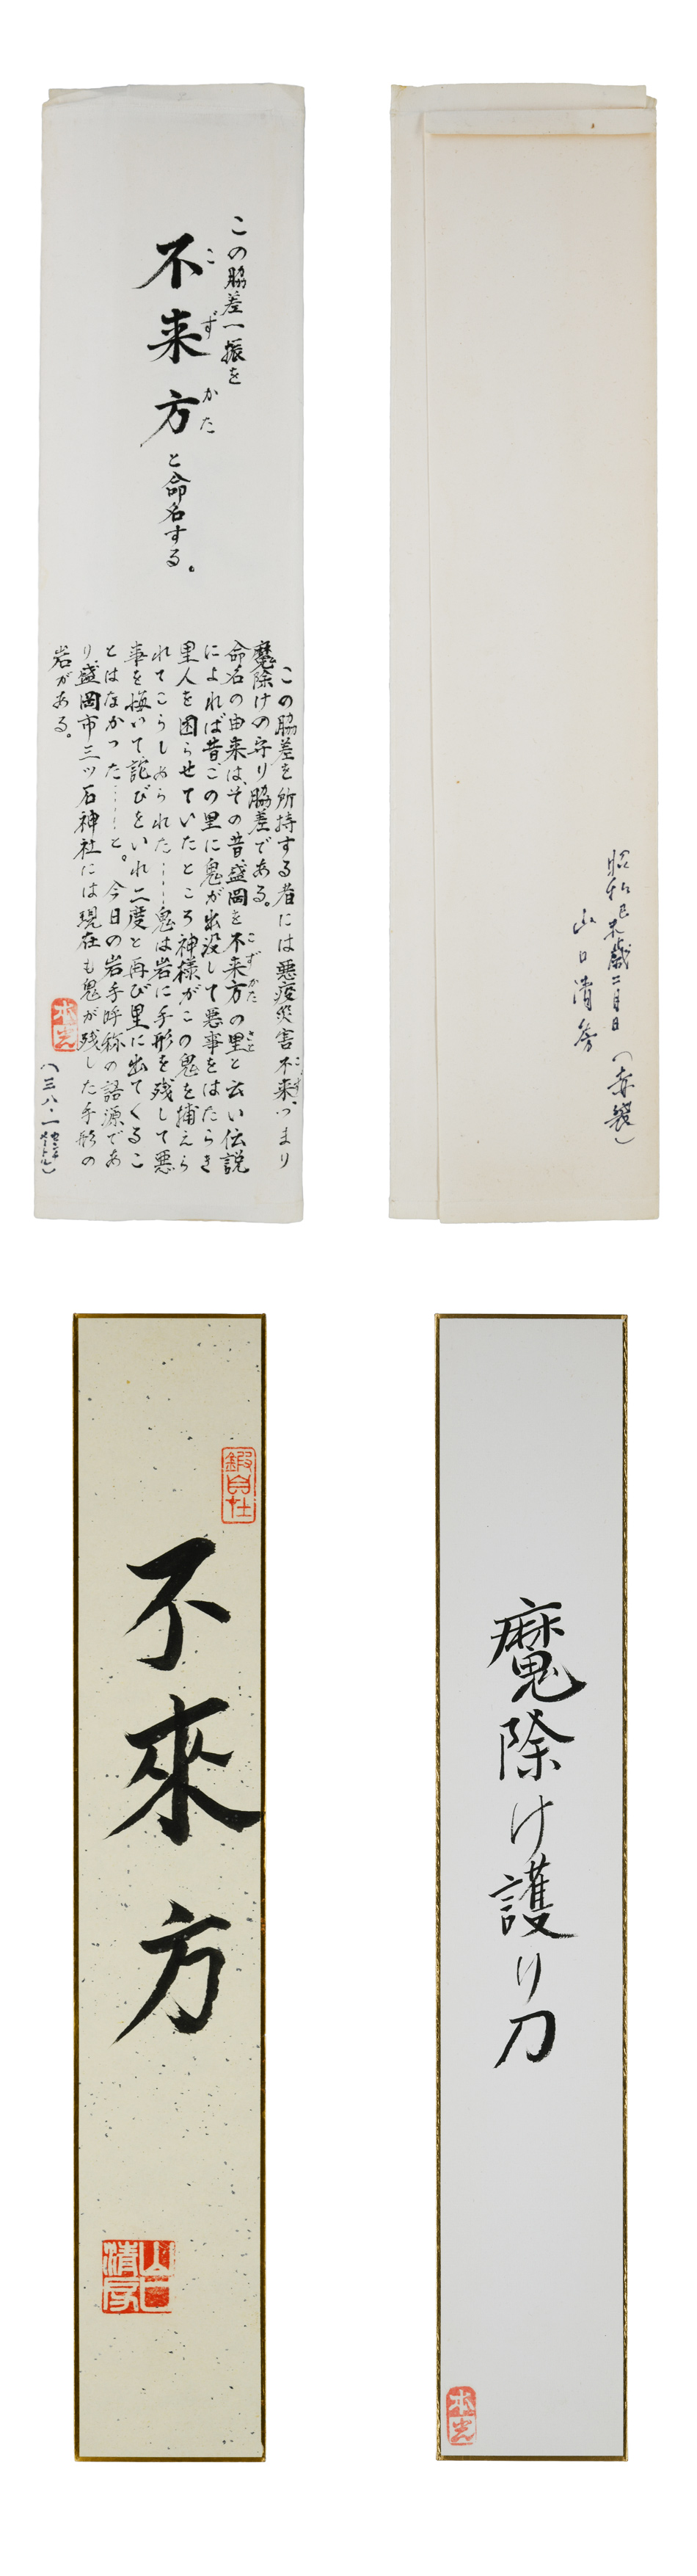 この脇差一振を
不来方と命名する。
こずかた
この脇差を所持する者には悪疫災害不来つまり
こず
魔除けの守り脇差である。
命名の由来は、その昔盛岡を不来方の里と云い伝説
こずかた さと
によれば昔この里に鬼が出没して悪事をはたらき
里人を困らせていたところ神様がこの鬼を捕えら
れてこらしめられた……鬼は岩に手形を残して悪
事を悔いて詫びをいれ二度と再び里に出てくるこ
とはなかった……と。今日の岩手呼称の語源であ
り盛岡市三ツ石神社には現在も鬼が残した手形の
岩がある。
(三八・一センチメートル)
昭和己未歳二月日(赤製)
山口清房
不來方
山口清房
魔除け護り刀